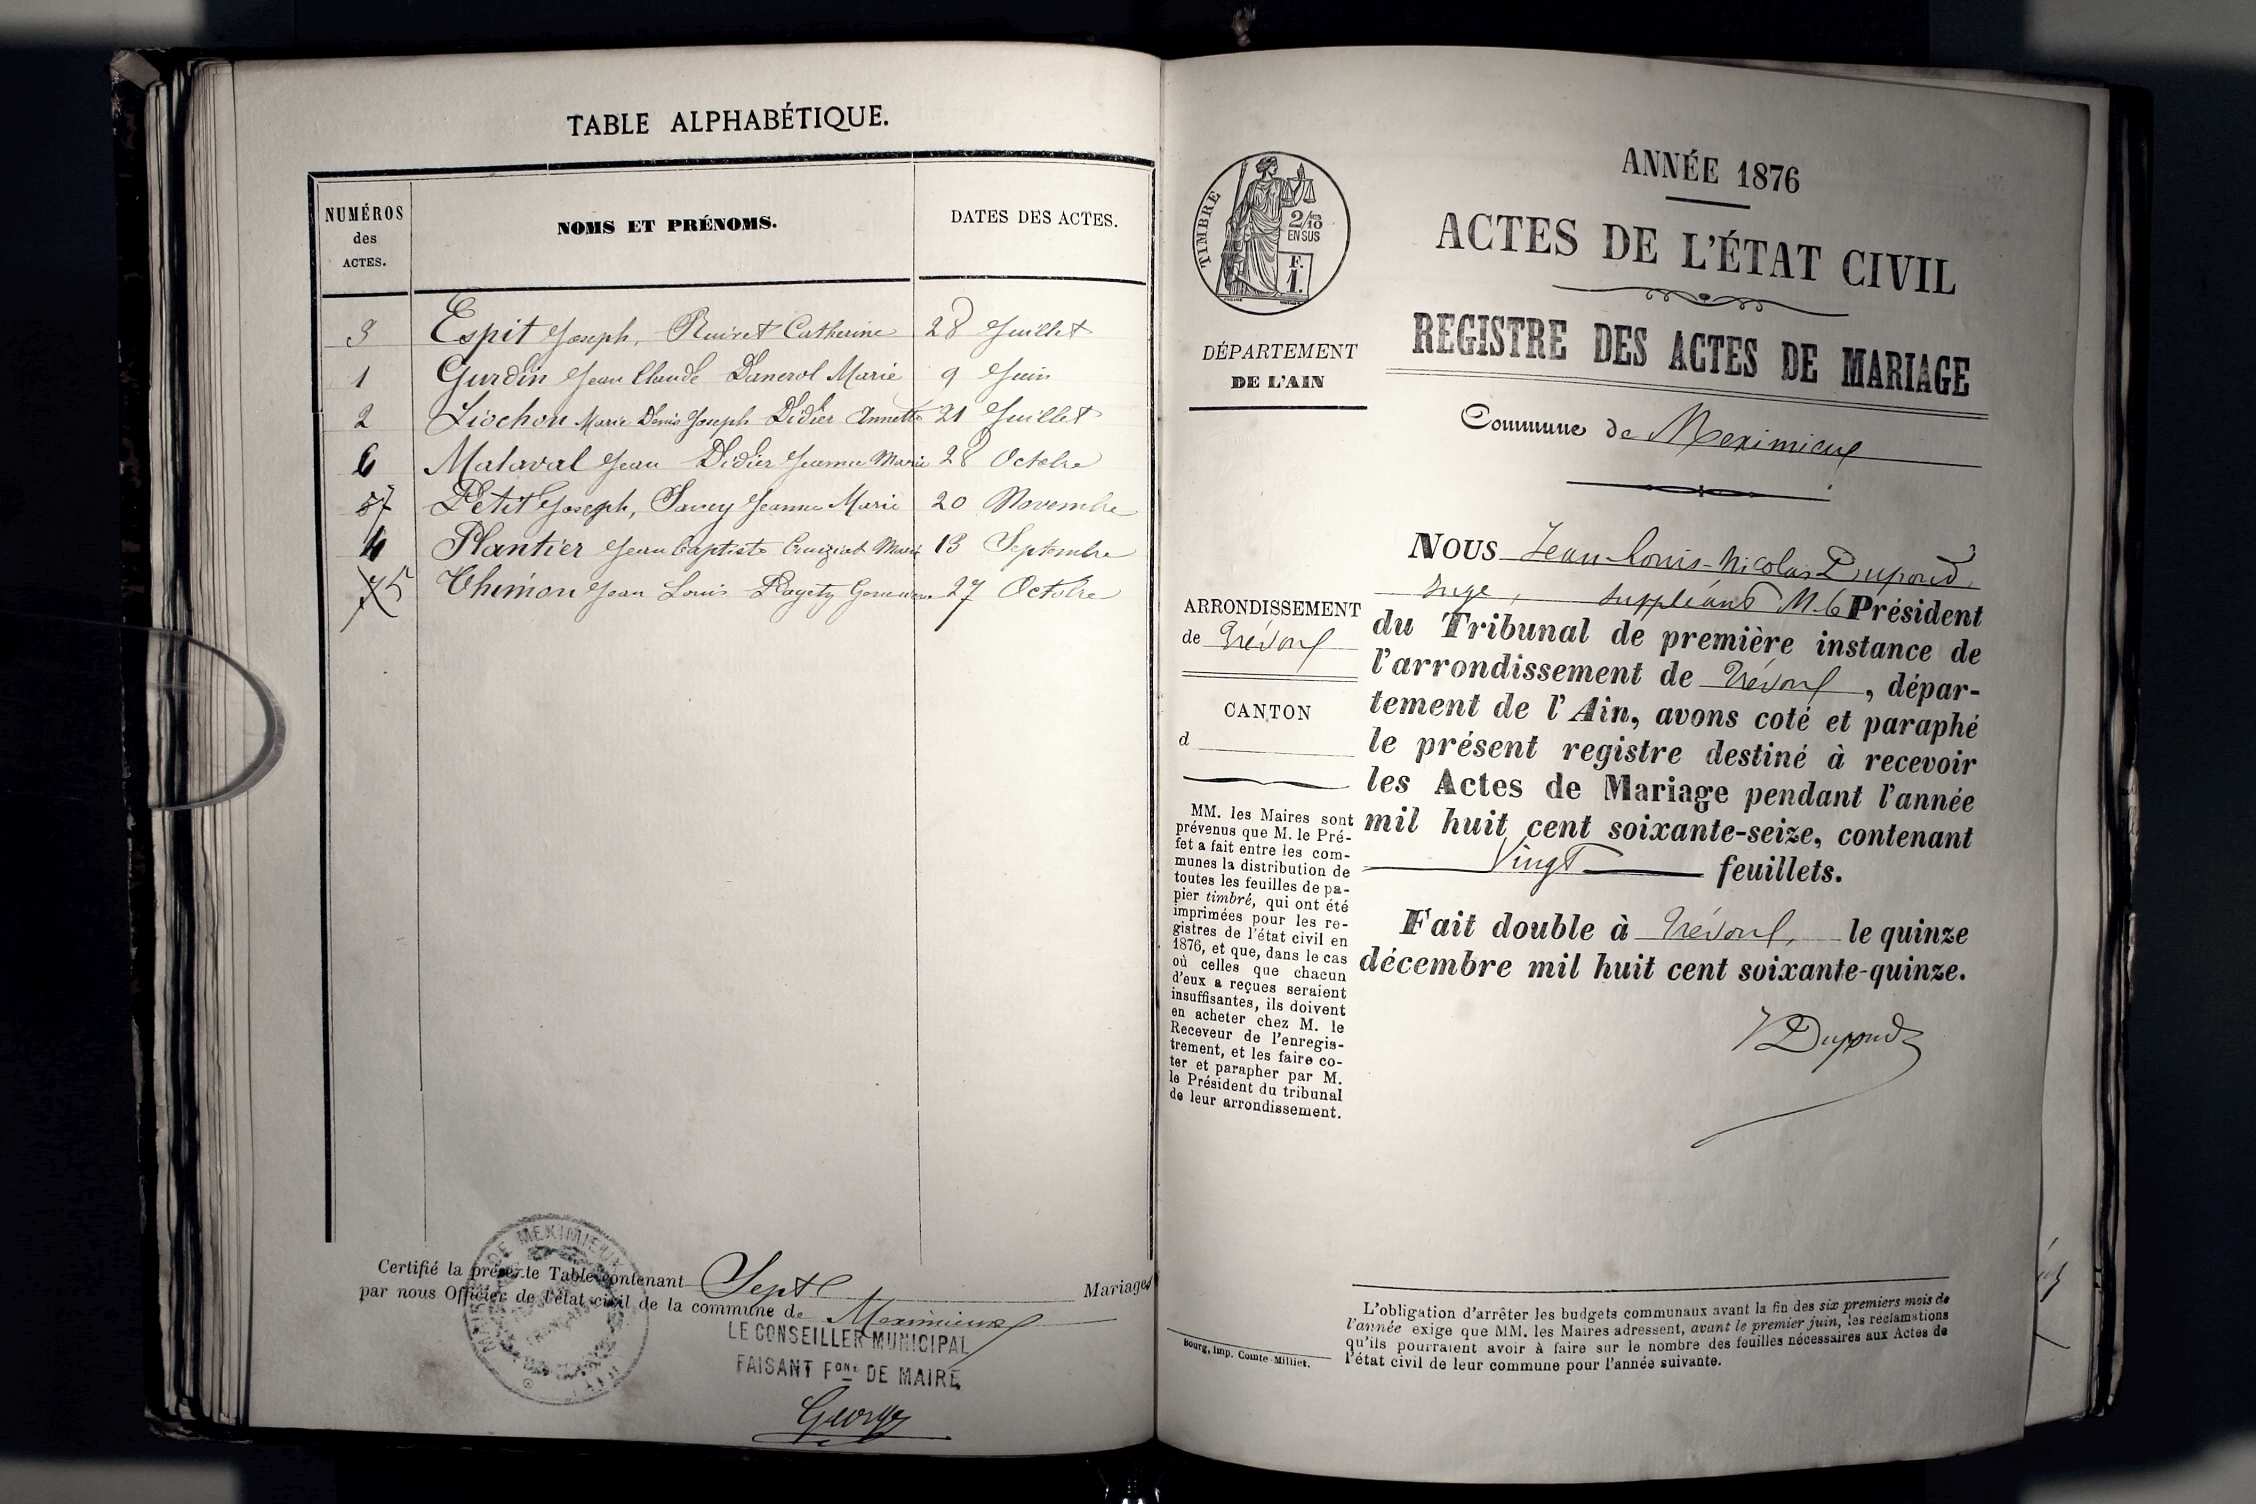 TABLE ALPHABÉTIQUE.
NUMÉROS
des
ACTES.
NOMS ET PRÉNOMS.
DATES DES ACTES.
3 Espit Joseph, Ruivet Catherine 28 Juillet
1 Gurdin Jean Claude Danerol Marie 9 Juin
2 Liochon Marie Denis Joseph Didier Annette 21 Juillet
6 Malaval Jean Didier Jeanne Marie 28 Octobre
7 Petit Joseph, Savey Jeanne Marie 20 Novembre
4 Plantier Jean Baptiste Cruiziat Marie 13 Septembre
5 Thimon Jean Louis 27 Octobre
Certifié la présente Table contenant Sept Mariages
par nous Officier de l'état civil de la commune de Meximieux
MAIRIE DE MEXIMIEUX
LE CONSEILLER MUNICIPAL
FAISANT F.ONS DE MAIRE
George
TIMBRE
2/10
EN SUS
F.
1.
DÉPARTEMENT
DE L'AIN
ARRONDISSEMENT
de Trévoux
CANTON
d
MM. les Maires sont
prévenus que M. le Pré-
fet a fait entre les com-
munes la distribution de
toutes les feuilles de pa-
pier timbré, qui ont été
imprimées pour les re-
gistres de l'état civil en
1876, et que, dans le cas
où celles que chacun
d'eux a reçues seraient
insuffisantes, ils doivent
en acheter chez M. le
Receveur de l'enregis-
trement, et les faire co-
ter et parapher par M.
le Président du tribunal
de leur arrondissement.
Bourg, imp. Comte-Milliet.
ANNÉE 1876
ACTES DE L'ÉTAT CIVIL
REGISTRE DES ACTES DE MARIAGE
Commune de Meximieux
NOUS Jean-Louis-Nicolas Dupond,
Juge, suppléant M. le Président
du Tribunal de première instance de
l'arrondissement de Trévoux, dépar-
tement de l'Ain, avons coté et paraphé
le présent registre destiné à recevoir
les Actes de Mariage pendant l'année
mil huit cent soixante-seize, contenant
Vingt feuillets.
Fait double à Trévoux, le quinze
décembre mil huit cent soixante-quinze.
Dupond
L'obligation d'arrêter les budgets communaux avant la fin des six premiers mois de
l'année exige que MM. les Maires adressent, avant le premier juin, les réclamations
qu'ils pourraient avoir à faire sur le nombre des feuilles nécessaires aux Actes de
l'état civil de leur commune pour l'année suivante.